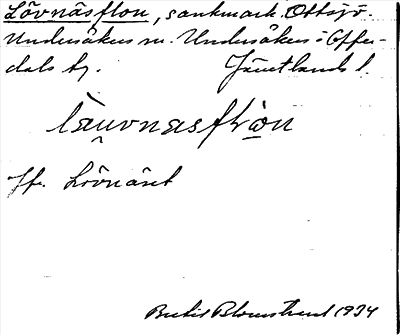 Lövnäsflon, sankmark. Ottsjö.
Undersåkers sn. Undersåkers o Offer-
dals tg. Jämtlands l.
làuvnasfḷòn
Jfr. Lövnäset
Bertil Blomstrand 1934